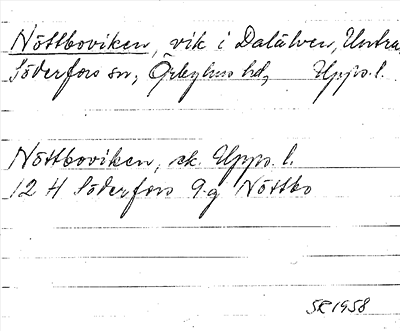 Nöttboviken, vik i Dalälven, Untra,
Söderfors sn, Örbyhus hd, Upps. l.
Nöttboviken, ek. Upps. l.
12 H Söderfors 9 g Nöttbo
SR 1958